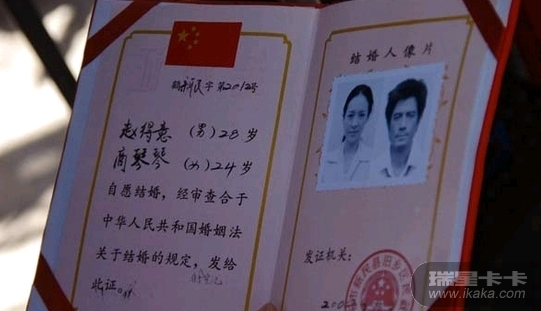 新民字第2012号
赵得意 (男) 28 岁
商琴琴 (女) 24 岁
自愿结婚，经审查合于
中华人民共和国婚姻法
关于结婚的规定，发给
此证。
结婚人像片
发证机关：
瑞星卡卡
www.ikaka.com